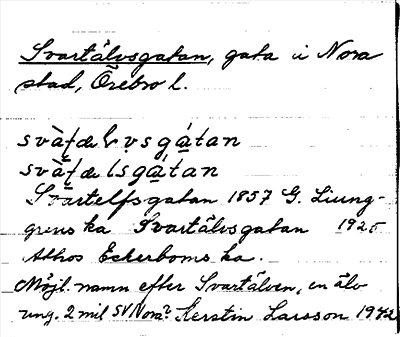 Svartälvsgatan, gata i Nora
stad, Örebro l.
svàʈælvsgátan
svàʈælsgátan
Svartelfsgatan 1857 G. Ljung-
grens ka Svartälvsgatan 1925
Athos Eckerboms ka.
Möjl. namn efter Svartälven, en älv
ung. 2 mil SV Nora? Kerstin Larsson 1942